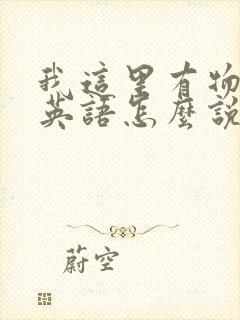 我這里有物
英語怎麼說
蔚空